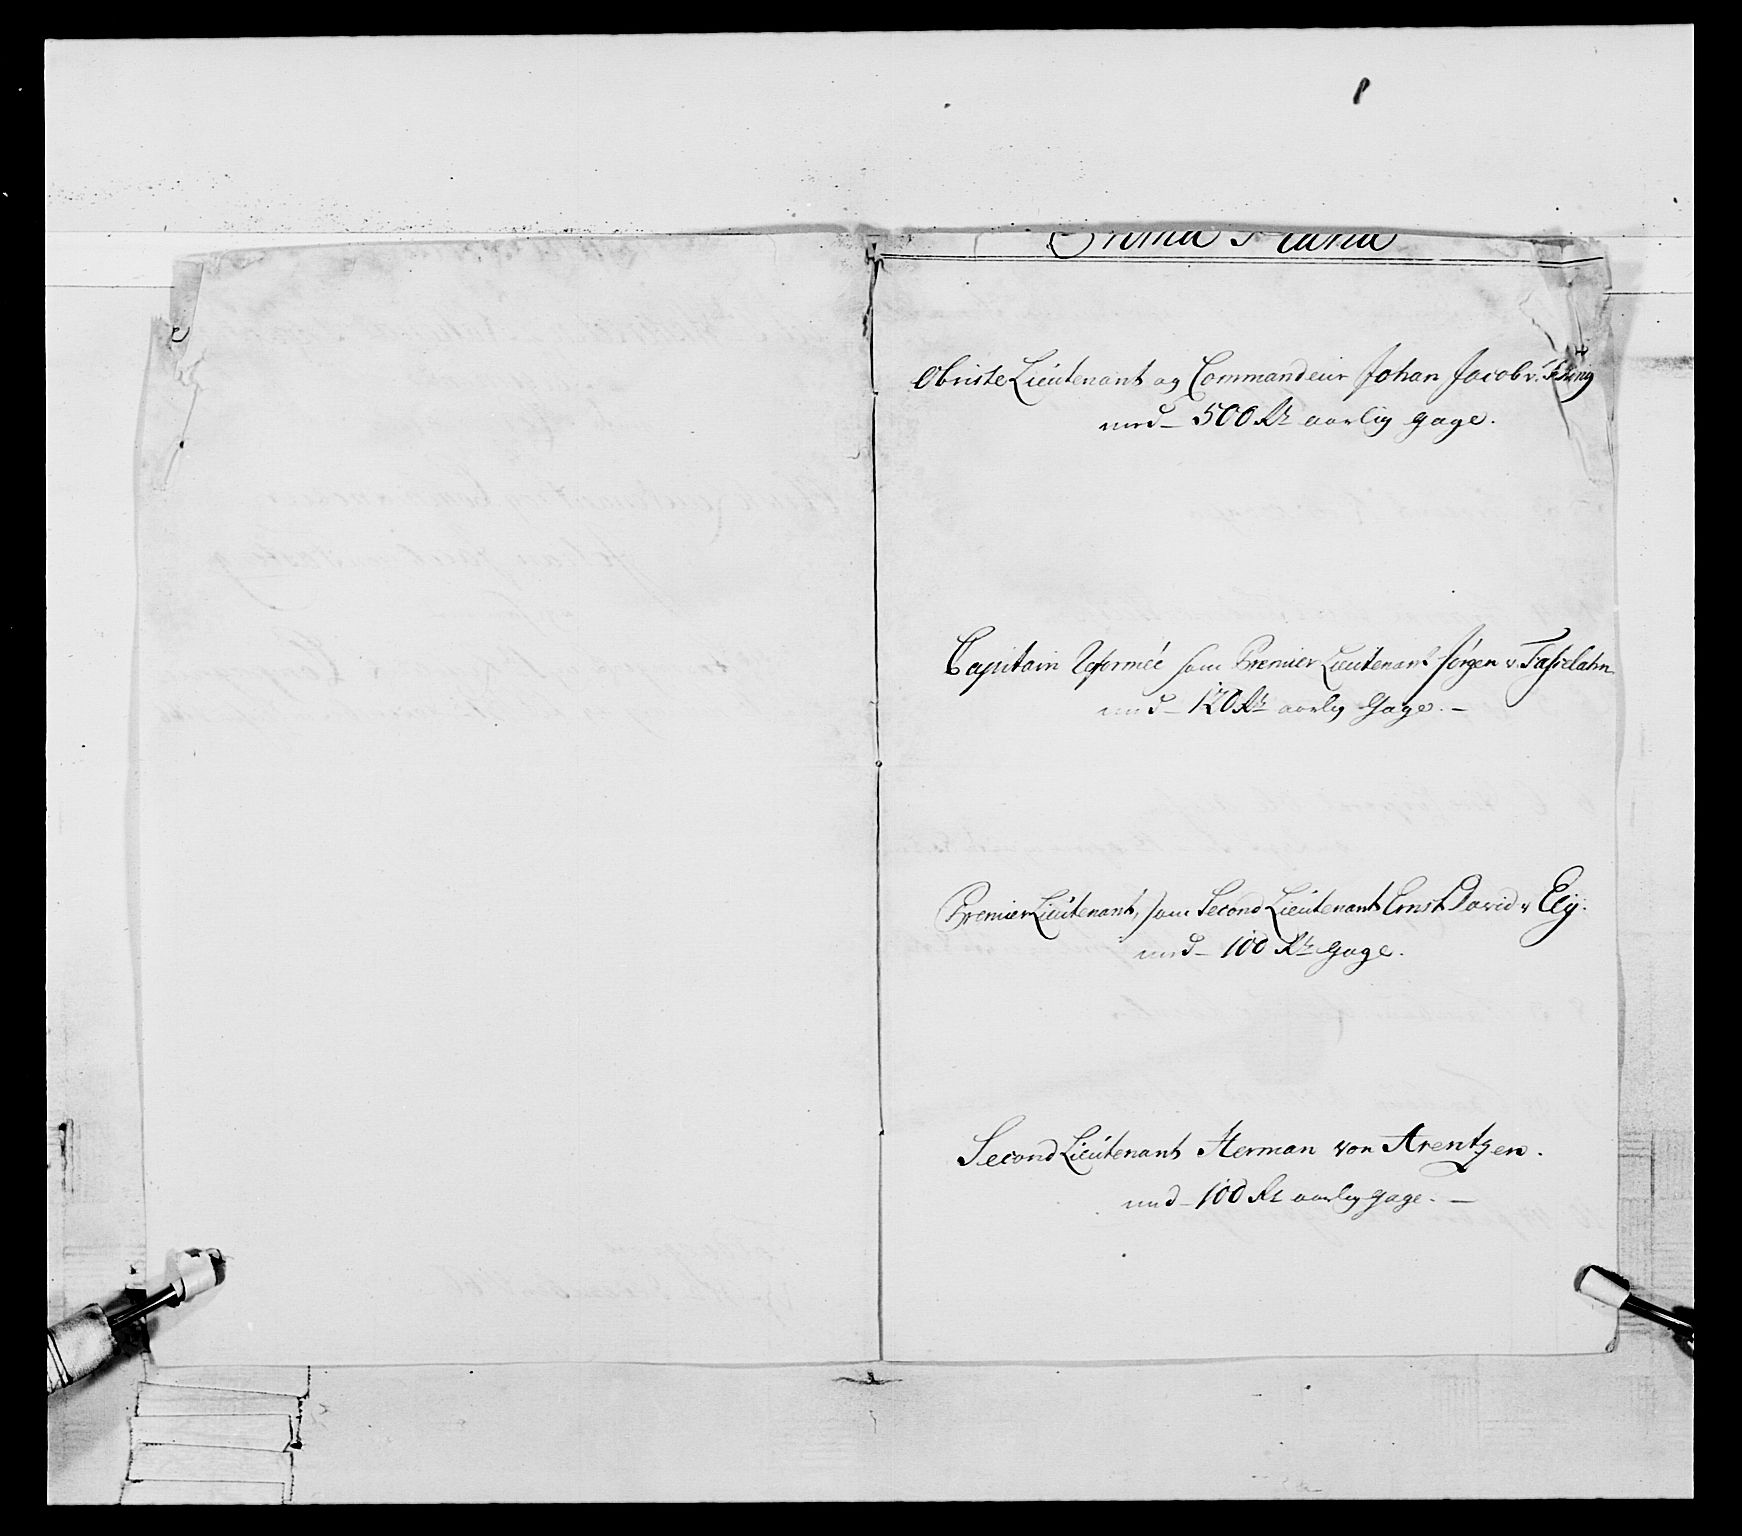 Prima Plana
Obriste Lieutenant og Commandeur Johan Jacob v:
med 500 Rd aarlig gage.
Capitain Reformée som Premier Lieutenant Jörgen v
med 120 Rd aarlig Gage. —
Premier Lieutenant, som Second Lieutenant Ernst David v
med 100 Rd Gage.
Second Lieutenant Herman von Arentzen.
med 100 Rd aarlig gage. —